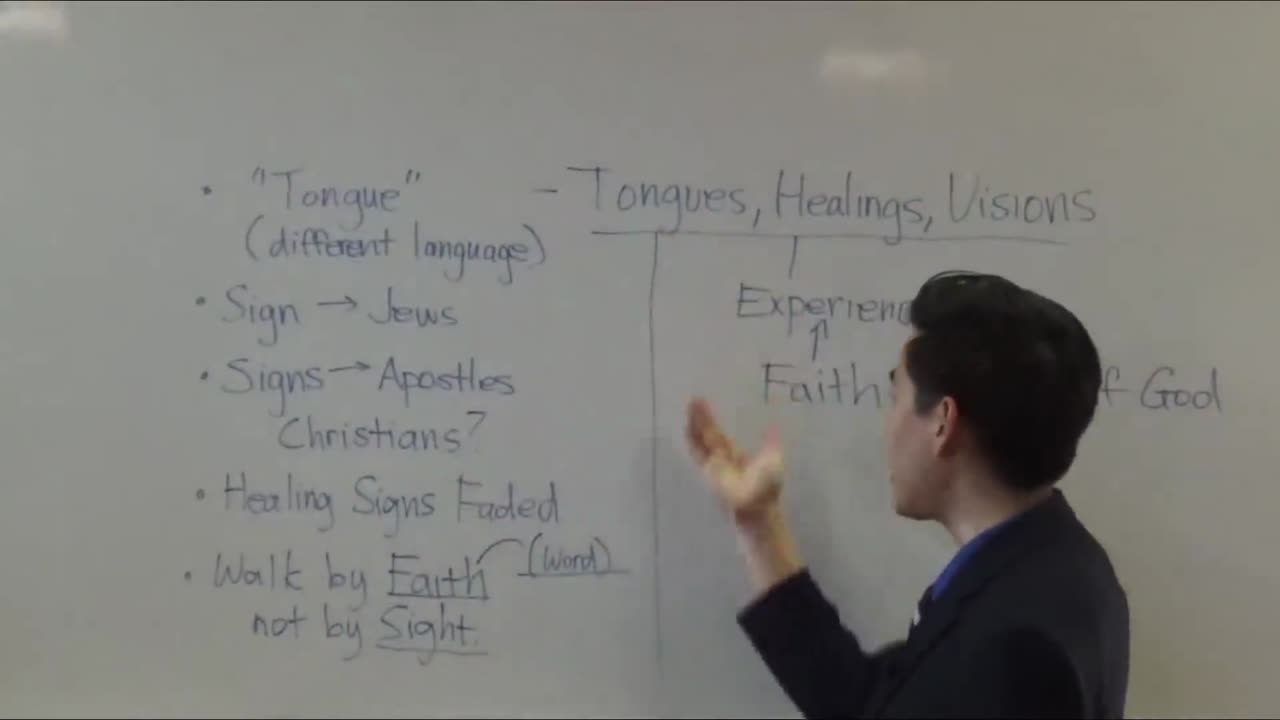 • "Tongue"
(different language)
• Sign → Jews
• Signs → Apostles
Christians?
• Healing Signs Faded
• Walk by Faith (Word)
not by Sight.
- Tongues, Healings, Visions
Experienc
↑
Faith
f God